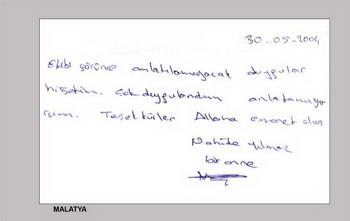 30..05-2004
Ekibi görünce anlatılamayacak duygular
hissettim. Çok duygulandım anlatamıyo
rum. Teşekkürler Allaha emanet olun
Nahide Yılmaz
bir anne
MALATYA